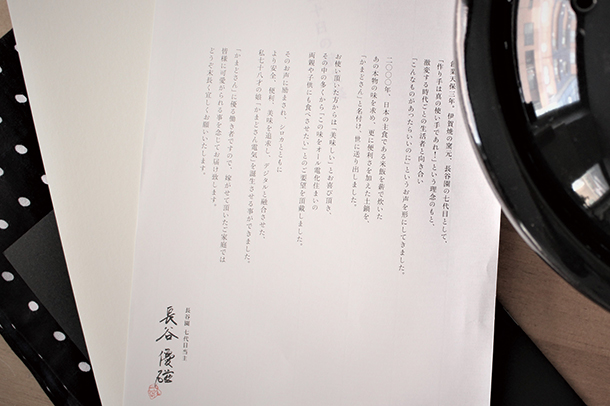 創業天保三年、伊賀焼の窯元、長谷園の七代目として、
「作り手は真の使い手であれ！」という理念のもと、
激変する時代ごとの生活者と向き合い
「こんなものがあったらいいのに」というお声を形にしてきました。
二〇〇〇年、日本の主食である米飯を薪で炊いた
あの本物の味を求め、更に便利さを加えた土鍋を、
「かまどさん」と名付け、世に送り出しました。
お使い頂いた方からは「美味しい」とお喜び頂き、
その中の多くから「この味をオール電化住まいの
両親や子供にも食べさせたい」とのご要望を頂戴しました。
そのお声に励まされ、シロカとともに
より安全、便利、美味を追求し、デジタルと融合させた、
私七十八才の娘「かまどさん電気」を誕生させる事ができました。
「かまどさん」に優る働き者ですので、嫁がせて頂いたご家庭では
皆様に可愛がられる事を念じてお届け致します。
どうぞ末長く宜しくお願いいたします。
長谷園 七代目当主
長谷優磁